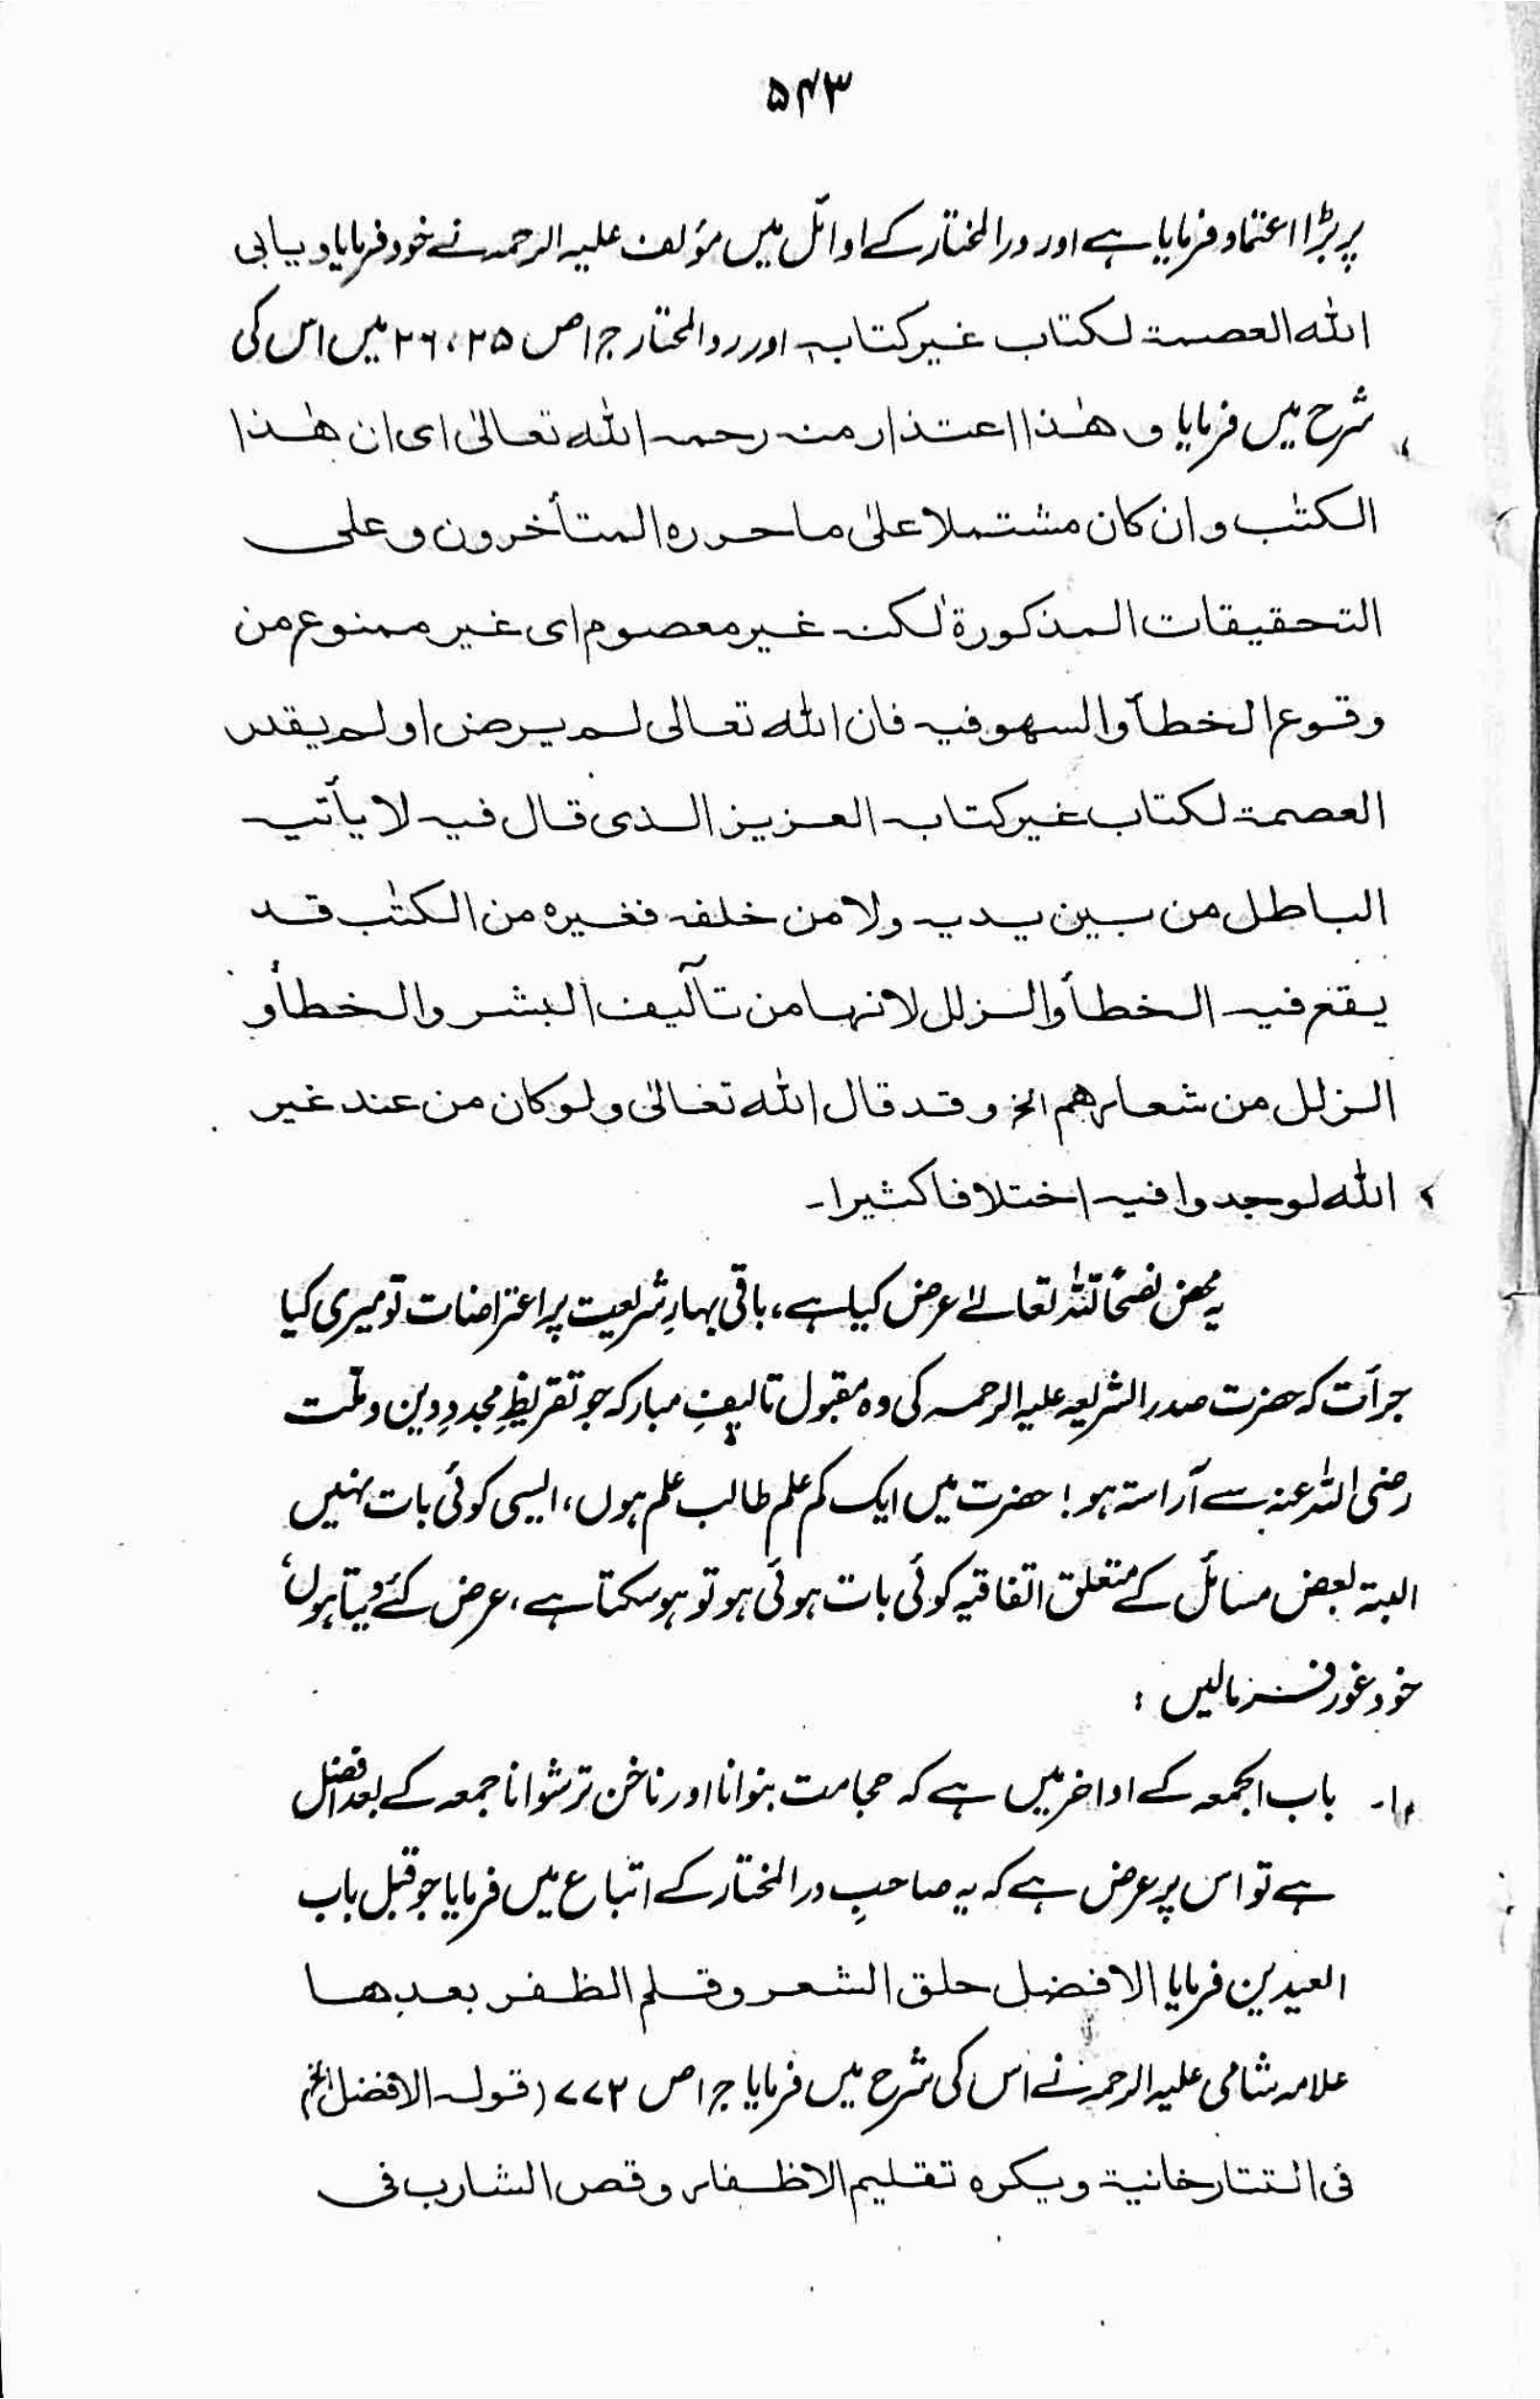 ۵۴۳
پر بڑا اعتماد فرمایا ہے اور درالمختار کے اوائل میں مؤلف علیہ الرحمہ نے خود فرمایا ویابی
اللہ العصمۃ لکتاب غیر کتابہ اور ردالمحتار ج ۱ ص ۲۵، ۲۶ میں اس کی
شرح میں فرمایا و ھٰذا اعتذار منہ رحمہ اللہ تعالیٰ ای ان ھٰذا
الکتٰب وان کان مشتملا علیٰ ما حررہ المتأخرون و علی
التحقیقات المذکورۃ لٰکنہ غیر معصوم ای غیر ممنوع من
وقوع الخطأ والسھو فیہ فان اللہ تعالی لم یرض او لم یقدر
العصمۃ لکتاب غیر کتابہ العزیز الذی قال فیہ لا یأتیہ
الباطل من بین یدیہ ولا من خلفہ فغیرہ من الکتٰب قد
یقع فیہ الخطأ والزلل لانہا من تآلیف البشر والخطأ و
الزلل من شعارھم الخ وقد قال اللہ تعالیٰ ولو کان من عند غیر
اللہ لوجدوا فیہ اختلافا کثیرا۔
یہ محض نصحًا للہ تعالےٰ عرض کیا ہے، باقی بہارِ شریعت پر اعتراضات تو میری کیا
جرأت کہ حضرت صدر الشریعہ علیہ الرحمہ کی وہ مقبول تالیفِ مبارکہ جو تقریظِ مجددِ دین و ملّت
رضی اللہ عنہ سے آراستہ ہو! حضرت میں ایک کم علم طالب علم ہوں، ایسی کوئی بات نہیں
البتہ بعض مسائل کے متعلق اتفاقیہ کوئی بات ہوئی ہو تو ہو سکتا ہے، عرض کئے دیتا ہوں،
خود غور فرمالیں :
۱۔ باب الجمعہ کے اواخر میں ہے کہ حجامت بنوانا اور ناخن ترشوانا جمعہ کے بعد افضل
ہے تو اس پر عرض ہے کہ یہ صاحبِ درالمختار کے اتباع میں فرمایا جو قبل باب
العیدین فرمایا الافضل حلق الشعر وقلم الظفر بعدھا
علامہ شامی علیہ الرحمہ نے اس کی شرح میں فرمایا ج ۱ ص ۷۷۲ (قولہ الافضل الخ)
فی التتارخانیۃ ویکرہ تقلیم الاظفار وقص الشارب فی